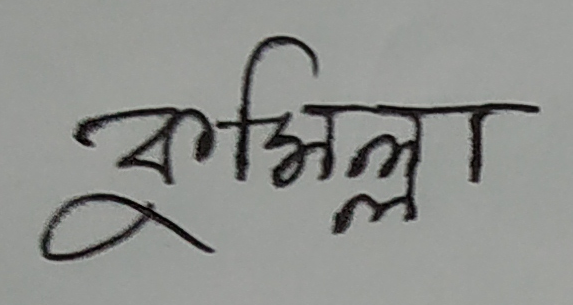 কুমিল্লা